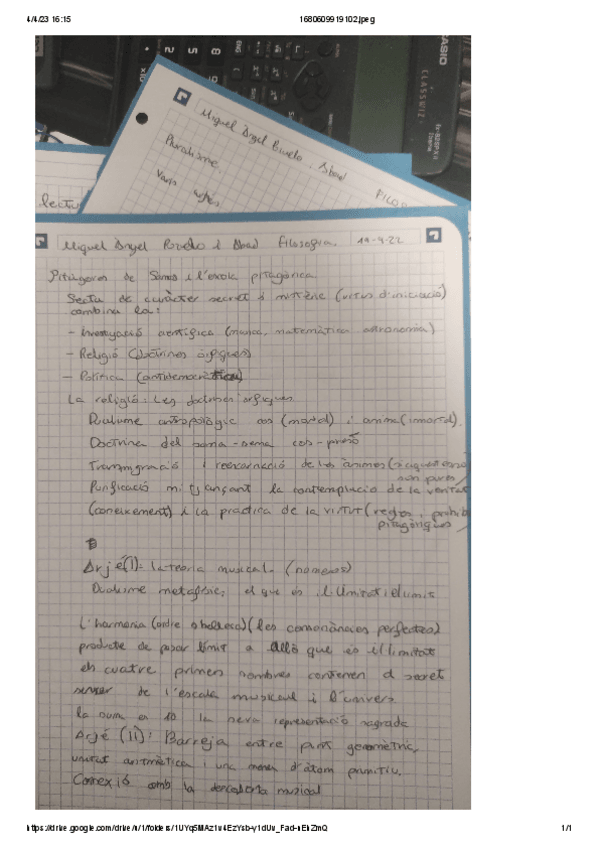 4/4/23 16:15
1680609919102.jpeg
CASIO
CLASSWIZ
Miguel Angel
Pluralisme
Varis
lectu
Miguel Angel Poveda i Abad Filosofia. 19-9-22
Pitàgores de Samos i l'escola pitagòrica
Secta de caràcter secret i mistèric (ritus d'iniciació)
combina la:
- Investigació científica (música, matemàtica astronomia)
- Religió (doctrines òrfiques)
- Política
La religió: Les doctrines òrfiques
Dualisme antropològic cos (mortal) i anima (inmortal).
Doctrina del soma-sema cos-presó
Transmigració i reencarnació de les ànimes (si aquestes no
son pures)
Purificació mitjançant la contemplacio de la veritat
(coneixement) i la practica de la virtut (regles, prohib
pitagòriques)
Arjé (I): la teoria musical. (nombres)
Dualisme metafísic, el que és il·limitat i el límit
L'harmonia (ordre o bellesa) (les consonàncies perfectes)
producte de posar límit a allò que és il·limitat
els cuatre primers nombres contenen el secret
de l'escala musical i l'univers
la suma es 10 la seva representació sagrada
Arjé (II): Barreja entre punt geomètric,
unitat aritmètica i una mena d'àtom primitiu.
Conexió amb la musical
1/1